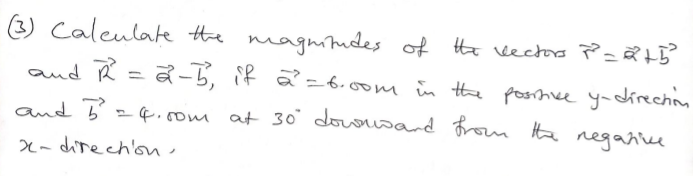 (3) Calculate the magnitudes of the vectors r⃗ = a⃗ + b⃗
and R⃗ = a⃗ - b⃗, if a⃗ = 6.00m in the positive y-direction
and b⃗ = 4.00m at 30° downward from the negative
x-direction.